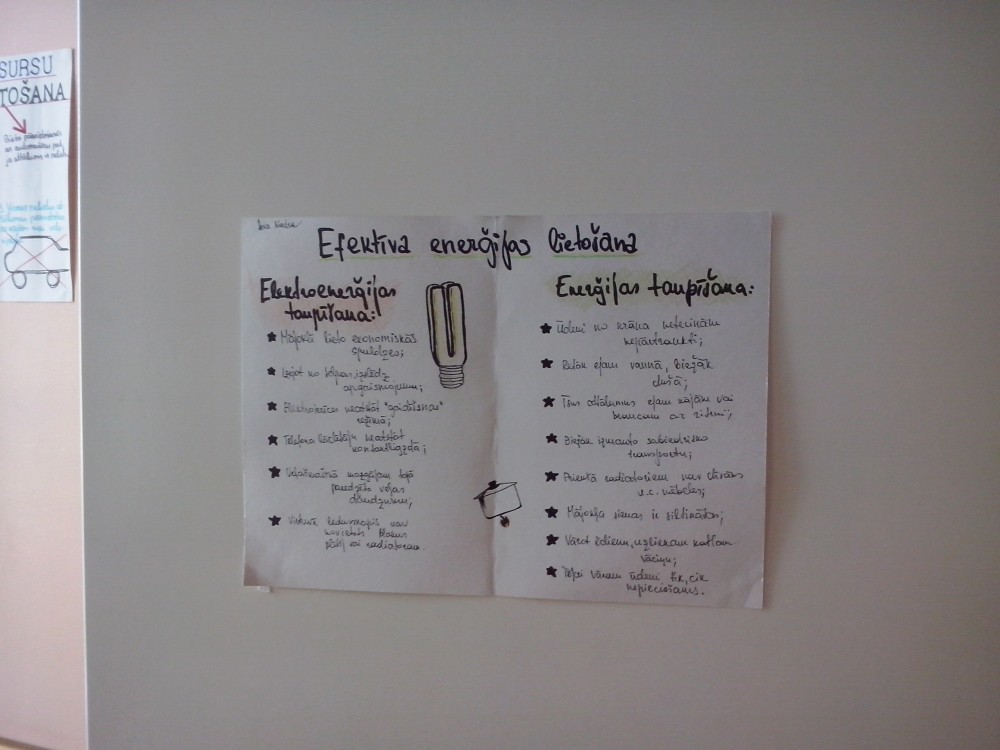 SURSU
TOŠANA
Efektīva enerģijas lietošana
Elektroenerģijas
taupīšana:
★ Mājoklī lieto ekonomiskās
spuldzes;
★ Izejot no telpas, izslēdz
apgaismojumu;
★ Elektroierīces neatstāt "gaidīšanas"
režīmā;
★ Telefona lādētāju neatstāt
kontaktligzdā;
★ Veļasmašīnā mazgājam tajā
paredzēto veļas
daudzumu;
★ Virtuvē ledusskapis nav
novietots blakus
plītij vai radiatoram.
Enerģijas taupīšana:
★ Ūdeni no krāna netecinām
nepārtraukti;
★ Retāk ejam vannā, biežāk
dušā;
★ Īsus attālumus ejam kājām vai
braucam ar riteni;
★ Biežāk izmanto sabiedrisko
transportu;
★ Priekšā radiatoriem nav dīvāns
u.c. mēbeles;
★ Mājokļa sienas ir siltinātas;
★ Vārot ēdienu, uzliekam katlam
vāciņu;
★ Tējai vāram ūdeni tik, cik
nepieciešams.